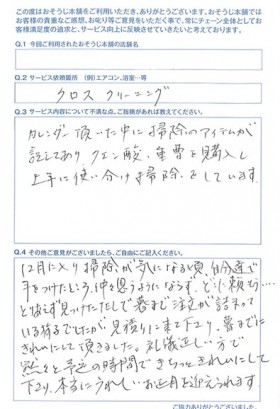 この度はおそうじ本舗をご利用いただき、ありがとうございます。おそうじ本舗では
お客様の貴重なご感想、お叱り等ご意見をいただく事で、常にチェーン全体としてお
客様満足度の追求と、サービス向上に反映させていきたいと考えております。
Q.1 今回ご利用されたおそうじ本舗の店舗名
Q.2 サービス依頼箇所 (例)エアコン、浴室…等
クロス クリーニング
Q.3 サービス内容についてご不満な点、ご指摘があれば教えてください。
カレンダー頂いた中に掃除のアイテムが
記してあり クエン酸、重曹を購入し
上手に使い分け掃除をしています。
Q.4 その他ご意見がございましたら、ご自由にご記入ください。
12月に入り掃除が気になる頃、自分達で
手をつけたという、仲々思うようにならず、どこに頼もう…
とりあえず見つけたたしで暮まで注文が詰まって
いる様でしたが見積りに来て下り、暮までに
きれいにして頂きました。礼儀正しい方で
黙々と予定の時間できちっときれいにして
下り、本当にうれしいお正月を迎えられます。
ご協力ありがとうございました。